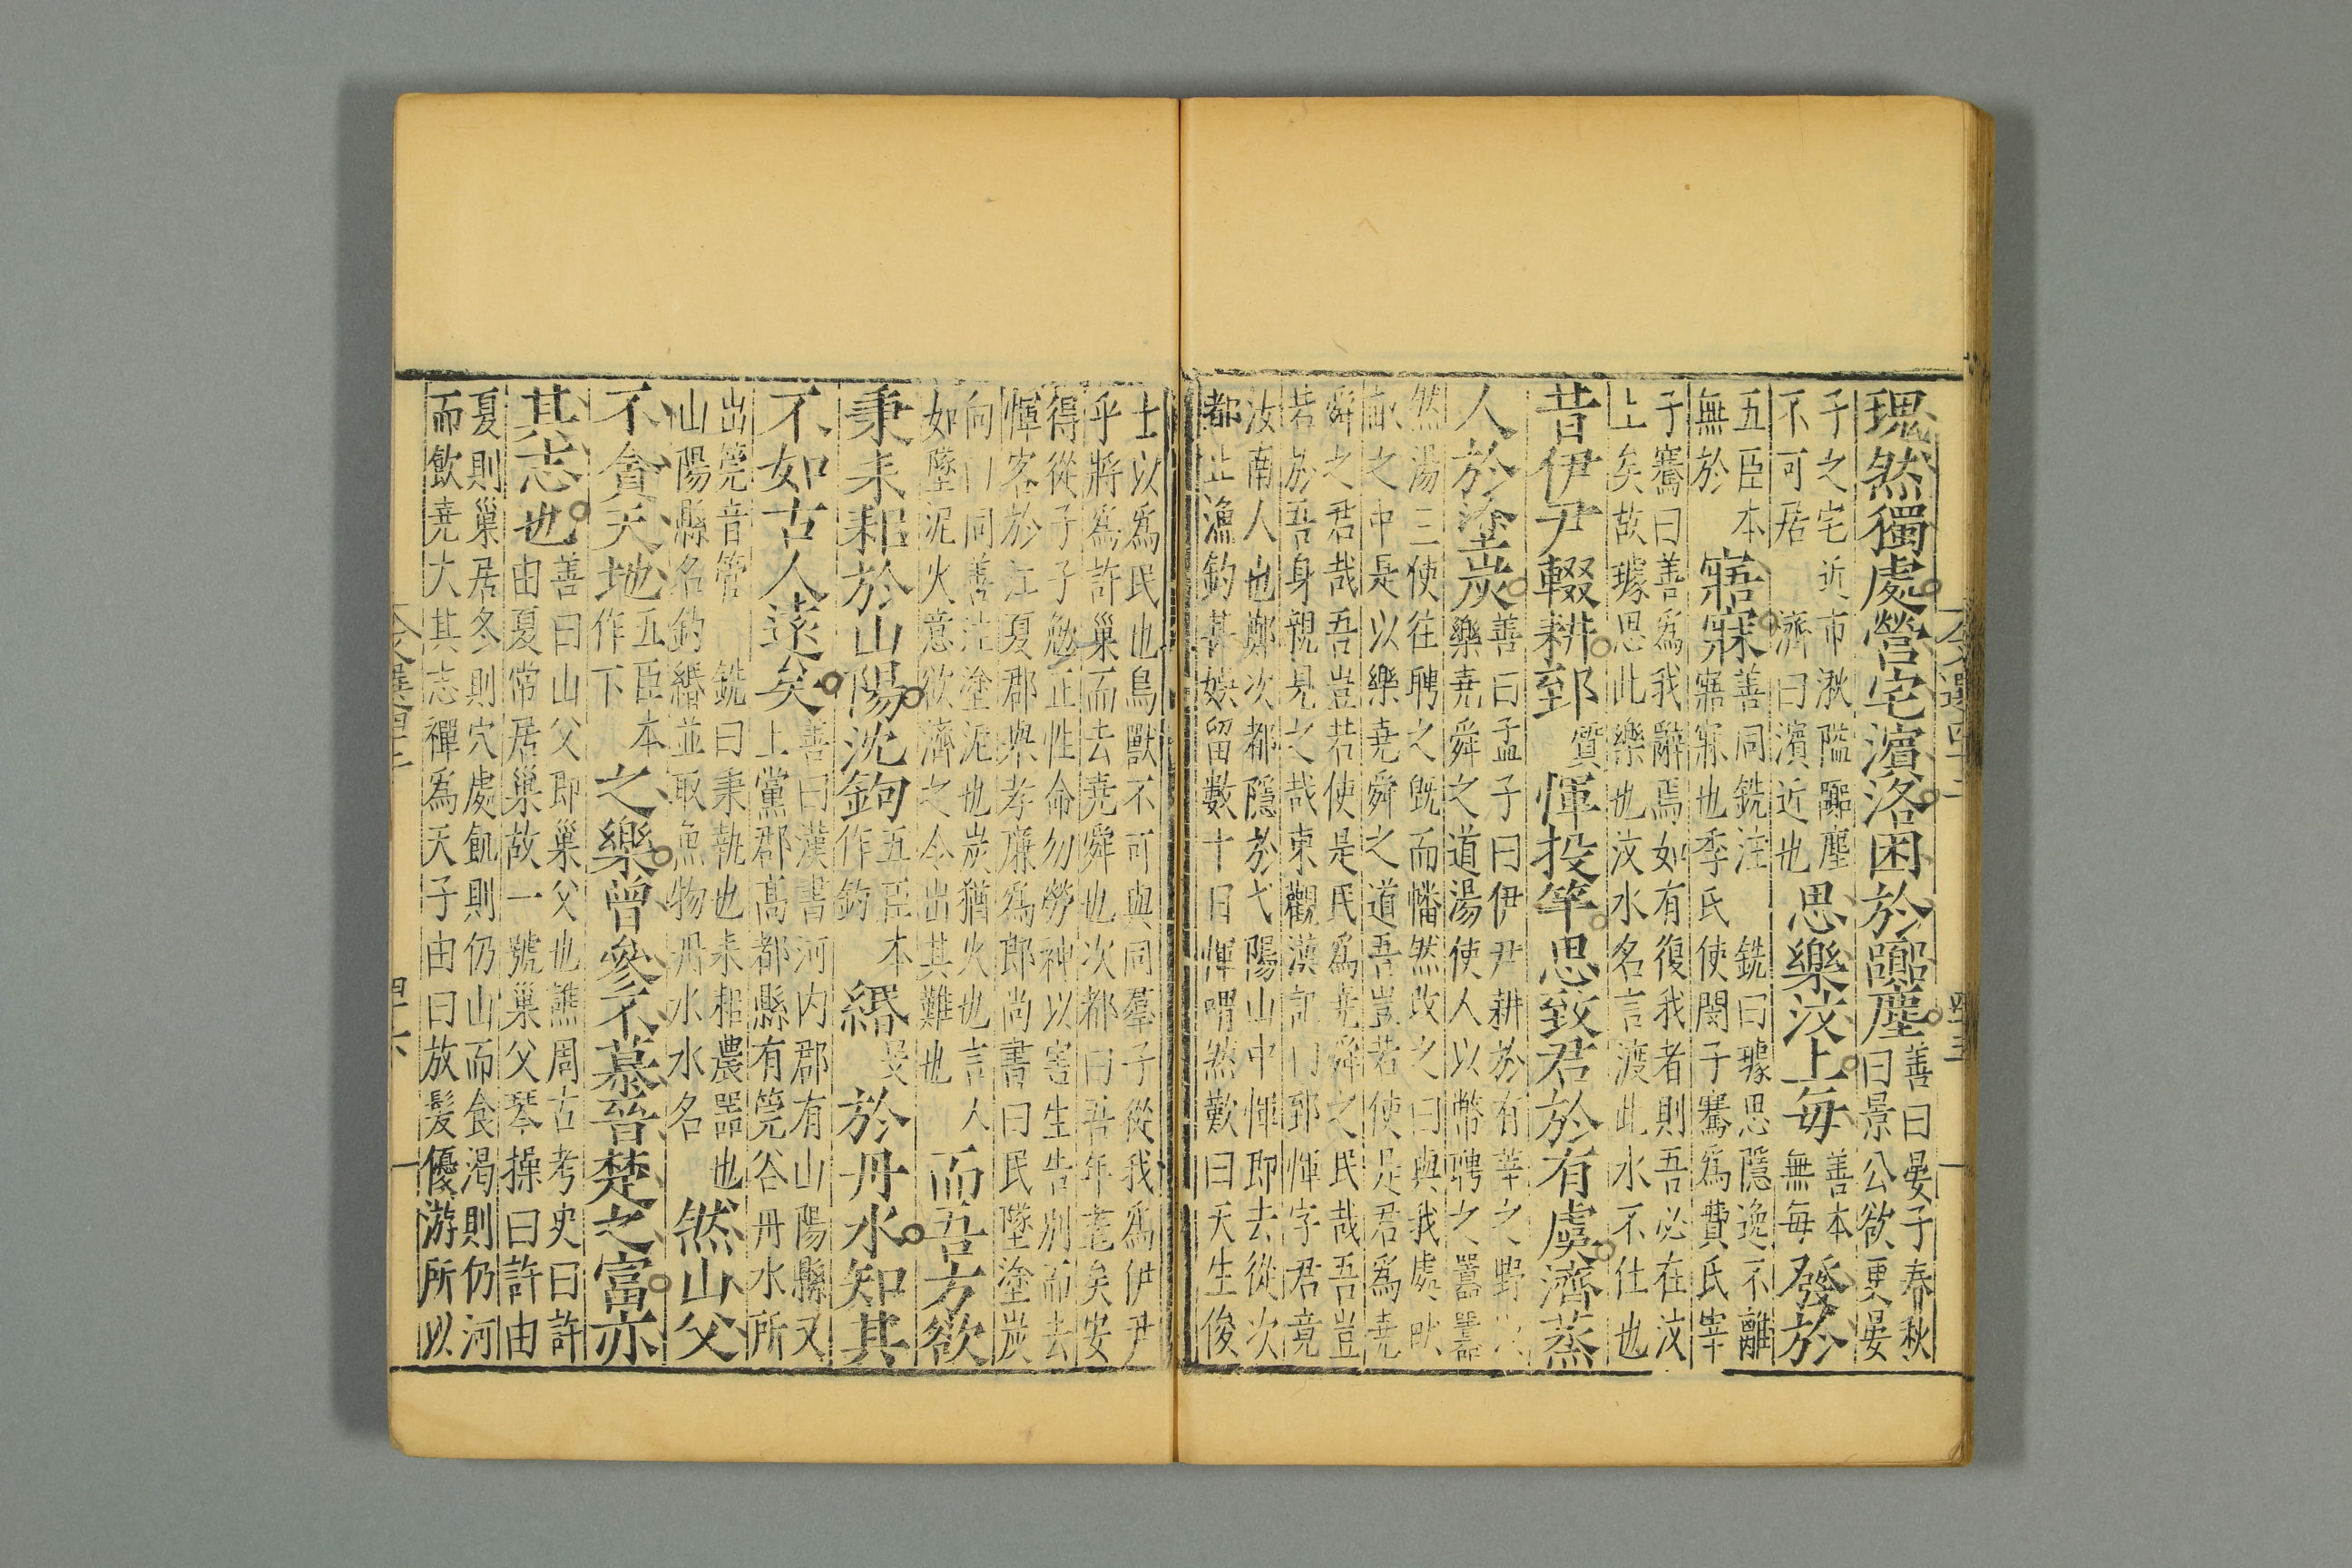 六臣文選四十二 四十五
瑰然獨處營宅濱洛困於嚻塵善曰晏子春秋曰景公欲更晏
子之宅近市湫隘嚻塵不可居濟曰濱近也思樂汶上每善本無每發於
五臣本無於寤寐善同銑注銑曰璩思隱逸不離寤寐也季氏使閔子騫爲費氏宰
子騫曰善爲我辭焉如有復我者則吾必在汶
上矣故璩思此樂也汶水名言渡此水不仕也
昔伊尹輟耕郅質惲投竿思致君於有虞濟蒸
人於塗炭善曰孟子曰伊尹耕於有莘之野以樂堯舜之道湯使人以幣聘之囂囂
然湯三使往聘之既而幡然改之曰與我處畎
畝之中是以樂堯舜之道吾豈若使是君爲堯
舜之君哉吾豈若使是民爲堯舜之民哉吾豈
若於吾身親見之哉東觀漢記曰郅惲字君竟
汝南人也鄭次都隱於弋陽山中惲即去從次
都止漁釣甚娛留數十日惲喟然歎曰天生俊
士以爲民也鳥獸不可與同羣子從我爲伊尹
乎將爲許巢而去堯舜也次都曰吾年耄矣安
得從子子勉正性命勿勞神以害生告別而去
惲客於江夏郡舉孝廉爲郎尚書曰民墜塗炭
向曰同善注塗泥也炭猶火也言人如墜泥火意欲濟之令出其難也而吾方欲
秉耒耜於山陽沈鉤五臣本作釣緡旻於丹水知其
不如古人遠矣善曰漢書河内郡有山陽縣又上黨郡高都縣有筦谷丹水所
出筦音管銑曰秉執也耒耜農器也山陽縣名釣緡並取魚物丹水水名然山父
不貪天地五臣本作下之樂曾參不慕晉楚之富亦
其志也善曰山父即巢父也譙周古考史曰許由夏常居巢故一號巢父琴操曰許由
夏則巢居冬則穴處飢則仍山而食渴則仍河
而飲堯大其志禪爲天子由曰放髪優游所以